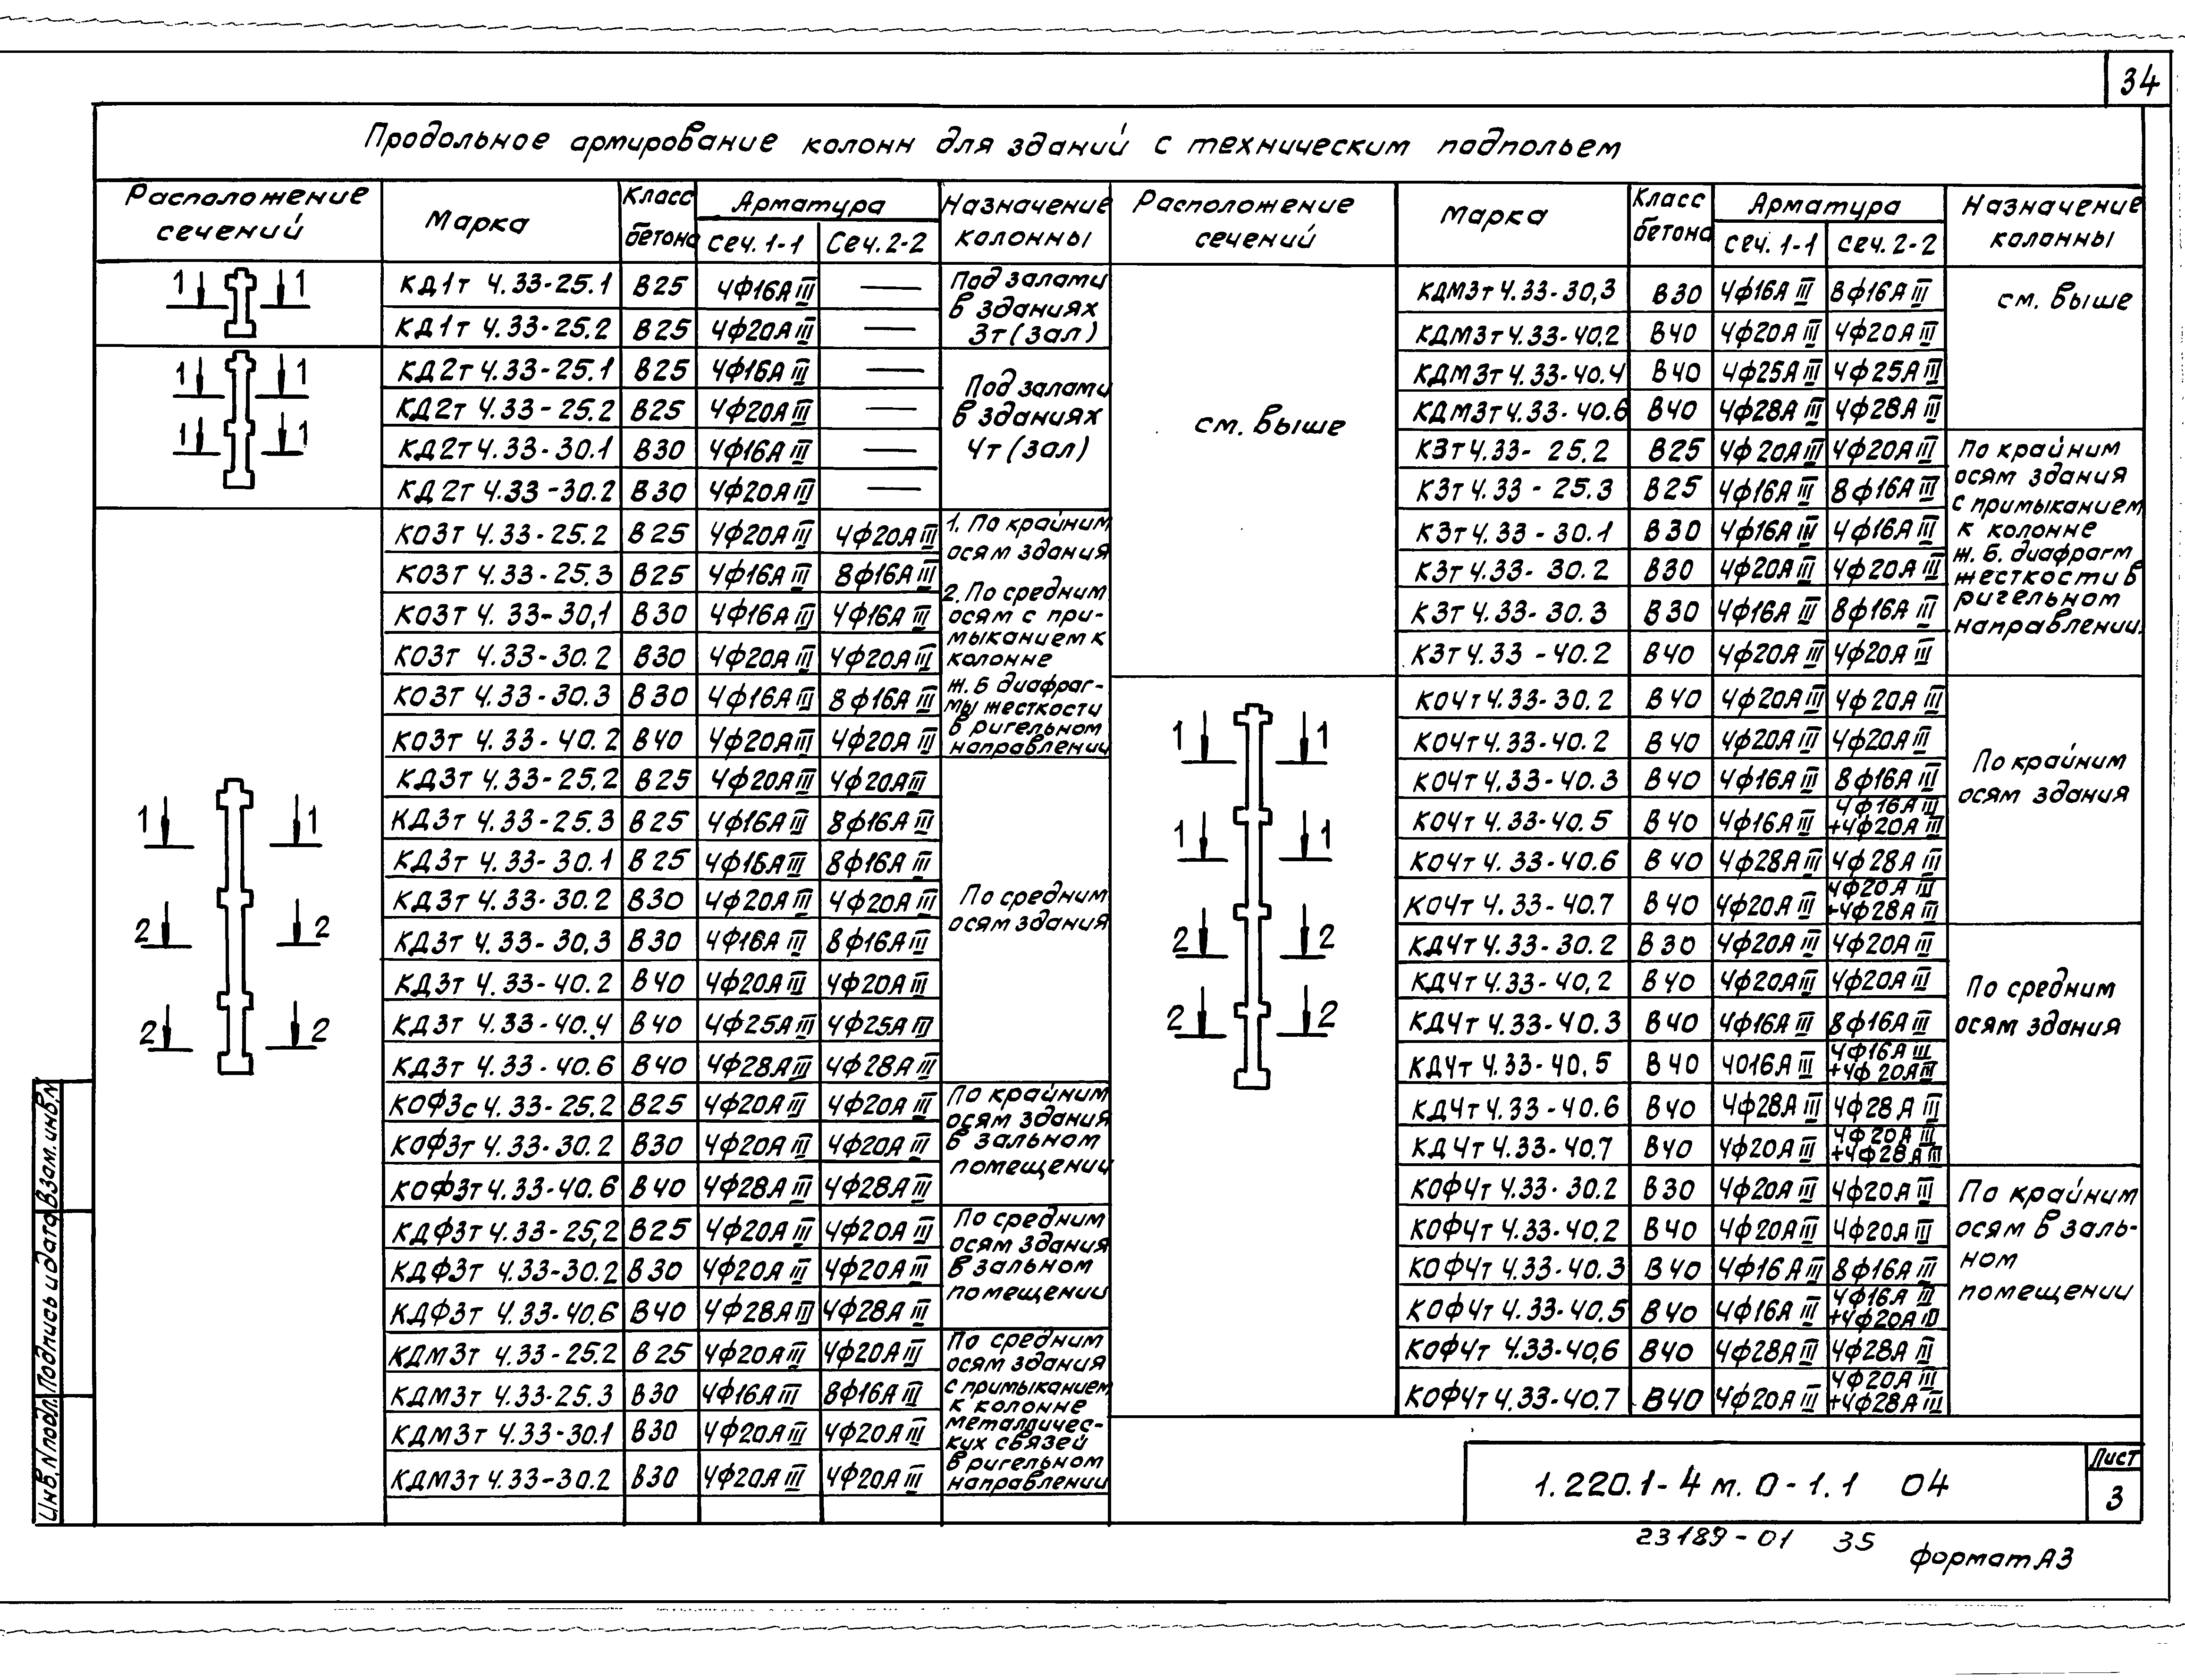 34
Продольное армирование колонн для зданий с техническим подпольем
Расположение сечений | Марка | Класс бетона | Арматура Сеч. 1-1 | Сеч. 2-2 | Назначение колонны
1 1
КД1т 4.33-25.1 | В25 | 4ф16АIII | —
КД1т 4.33-25.2 | В25 | 4ф20АIII | —
Под залами
в зданиях
3т (зал)
1 1
1 1
КД2т 4.33-25.1 | В25 | 4ф16АIII | —
КД2т 4.33-25.2 | В25 | 4ф20АIII | —
КД2т 4.33-30.1 | В30 | 4ф16АIII | —
КД2т 4.33-30.2 | В30 | 4ф20АIII | —
Под залами
в зданиях
4т (зал)
1 1
2 2
2 2
КО3т 4.33-25.2 | В25 | 4ф20АIII | 4ф20АIII
КО3т 4.33-25.3 | В25 | 4ф16АIII | 8ф16АIII
КО3т 4.33-30,1 | В30 | 4ф16АIII | 4ф16АIII
КО3т 4.33-30.2 | В30 | 4ф20АIII | 4ф20АIII
КО3т 4.33-30.3 | В30 | 4ф16АIII | 8ф16АIII
КО3т 4.33-40.2 | В40 | 4ф20АIII | 4ф20АIII
1. По крайним
осям здания
2. По средним
осям с при-
мыканием к
колонне
ж.б диафраг-
мы жесткости
в ригельном
направлении
КД3т 4.33-25,2 | В25 | 4ф20АIII | 4ф20АIII
КД3т 4.33-25.3 | В25 | 4ф16АIII | 8ф16АIII
КД3т 4.33-30.1 | В25 | 4ф16АIII | 8ф16АIII
КД3т 4.33-30.2 | В30 | 4ф20АIII | 4ф20АIII
КД3т 4.33-30,3 | В30 | 4ф16АIII | 8ф16АIII
КД3т 4.33-40.2 | В40 | 4ф20АIII | 4ф20АIII
КД3т 4.33-40.4 | В40 | 4ф25АIII | 4ф25АIII
КД3т 4.33-40.6 | В40 | 4ф28АIII | 4ф28АIII
По средним
осям здания
КОФ3с 4.33-25.2 | В25 | 4ф20АIII | 4ф20АIII
КОФ3т 4.33-30.2 | В30 | 4ф20АIII | 4ф20АIII
КОФ3т 4.33-40.6 | В40 | 4ф28АIII | 4ф28АIII
По крайним
осям здания
в зальном
помещении
КДФ3т 4.33-25,2 | В25 | 4ф20АIII | 4ф20АIII
КДФ3т 4.33-30.2 | В30 | 4ф20АIII | 4ф20АIII
КДФ3т 4.33-40.6 | В40 | 4ф28АIII | 4ф28АIII
По средним
осям здания
в зальном
помещении
КДМ3т 4.33-25.2 | В25 | 4ф20АIII | 4ф20АIII
КДМ3т 4.33-25.3 | В30 | 4ф16АIII | 8ф16АIII
КДМ3т 4.33-30.1 | В30 | 4ф20АIII | 4ф20АIII
КДМ3т 4.33-30.2 | В30 | 4ф20АIII | 4ф20АIII
По средним
осям здания
с примыканием
к колонне
металличес-
ких связей
в ригельном
направлении
Расположение сечений | Марка | Класс бетона | Арматура сеч. 1-1 | сеч. 2-2 | Назначение колонны
см. выше
КДМ3т 4.33-30,3 | В30 | 4ф16АIII | 8ф16АIII
КДМ3т 4.33-40,2 | В40 | 4ф20АIII | 4ф20АIII
КДМ3т 4.33-40.4 | В40 | 4ф25АIII | 4ф25АIII
КДМ3т 4.33-40.6 | В40 | 4ф28АIII | 4ф28АIII
см. выше
К3т 4.33-25.2 | В25 | 4ф20АIII | 4ф20АIII
К3т 4.33-25.3 | В25 | 4ф16АIII | 8ф16АIII
К3т 4.33-30.1 | В30 | 4ф16АIII | 4ф16АIII
К3т 4.33-30.2 | В30 | 4ф20АIII | 4ф20АIII
К3т 4.33-30.3 | В30 | 4ф16АIII | 8ф16АIII
К3т 4.33-40.2 | В40 | 4ф20АIII | 4ф20АIII
По крайним
осям здания
с примыканием
к колонне
ж.б. диафрагм
жесткости в
ригельном
направлении.
1 1
1 1
2 2
2 2
КО4т 4.33-30.2 | В40 | 4ф20АIII | 4ф20АIII
КО4т 4.33-40.2 | В40 | 4ф20АIII | 4ф20АIII
КО4т 4.33-40.3 | В40 | 4ф16АIII | 8ф16АIII
КО4т 4.33-40.5 | В40 | 4ф16АIII | 4ф16АIII +4ф20АIII
КО4т 4.33-40.6 | В40 | 4ф28АIII | 4ф28АIII
КО4т 4.33-40.7 | В40 | 4ф20АIII | 4ф20АIII +4ф28АIII
По крайним
осям здания
КД4т 4.33-30.2 | В30 | 4ф20АIII | 4ф20АIII
КД4т 4.33-40,2 | В40 | 4ф20АIII | 4ф20АIII
КД4т 4.33-40.3 | В40 | 4ф16АIII | 8ф16АIII
КД4т 4.33-40.5 | В40 | 4016АIII | 4ф16АIII +4ф20АIII
КД4т 4.33-40.6 | В40 | 4ф28АIII | 4ф28АIII
КД4т 4.33-40.7 | В40 | 4ф20АIII | 4ф20АIII +4ф28АIII
По средним
осям здания
КОФ4т 4.33-30.2 | В30 | 4ф20АIII | 4ф20АIII
КОФ4т 4.33-40,2 | В40 | 4ф20АIII | 4ф20АIII
КОФ4т 4.33-40.3 | В40 | 4ф16АIII | 8ф16АIII
КОФ4т 4.33-40.5 | В40 | 4ф16АIII | 4ф16АIII +4ф20АIII
КОФ4т 4.33-40,6 | В40 | 4ф28АIII | 4ф28АIII
КОФ4т 4.33-40.7 | В40 | 4ф20АIII | 4ф20АIII +4ф28АIII
По крайним
осям в заль-
ном
помещении
Инв.N подл. Подпись и дата Взам. инв.N
1.220.1-4 м. 0-1.1 04
Лист
3
23189-01 35
формат А3